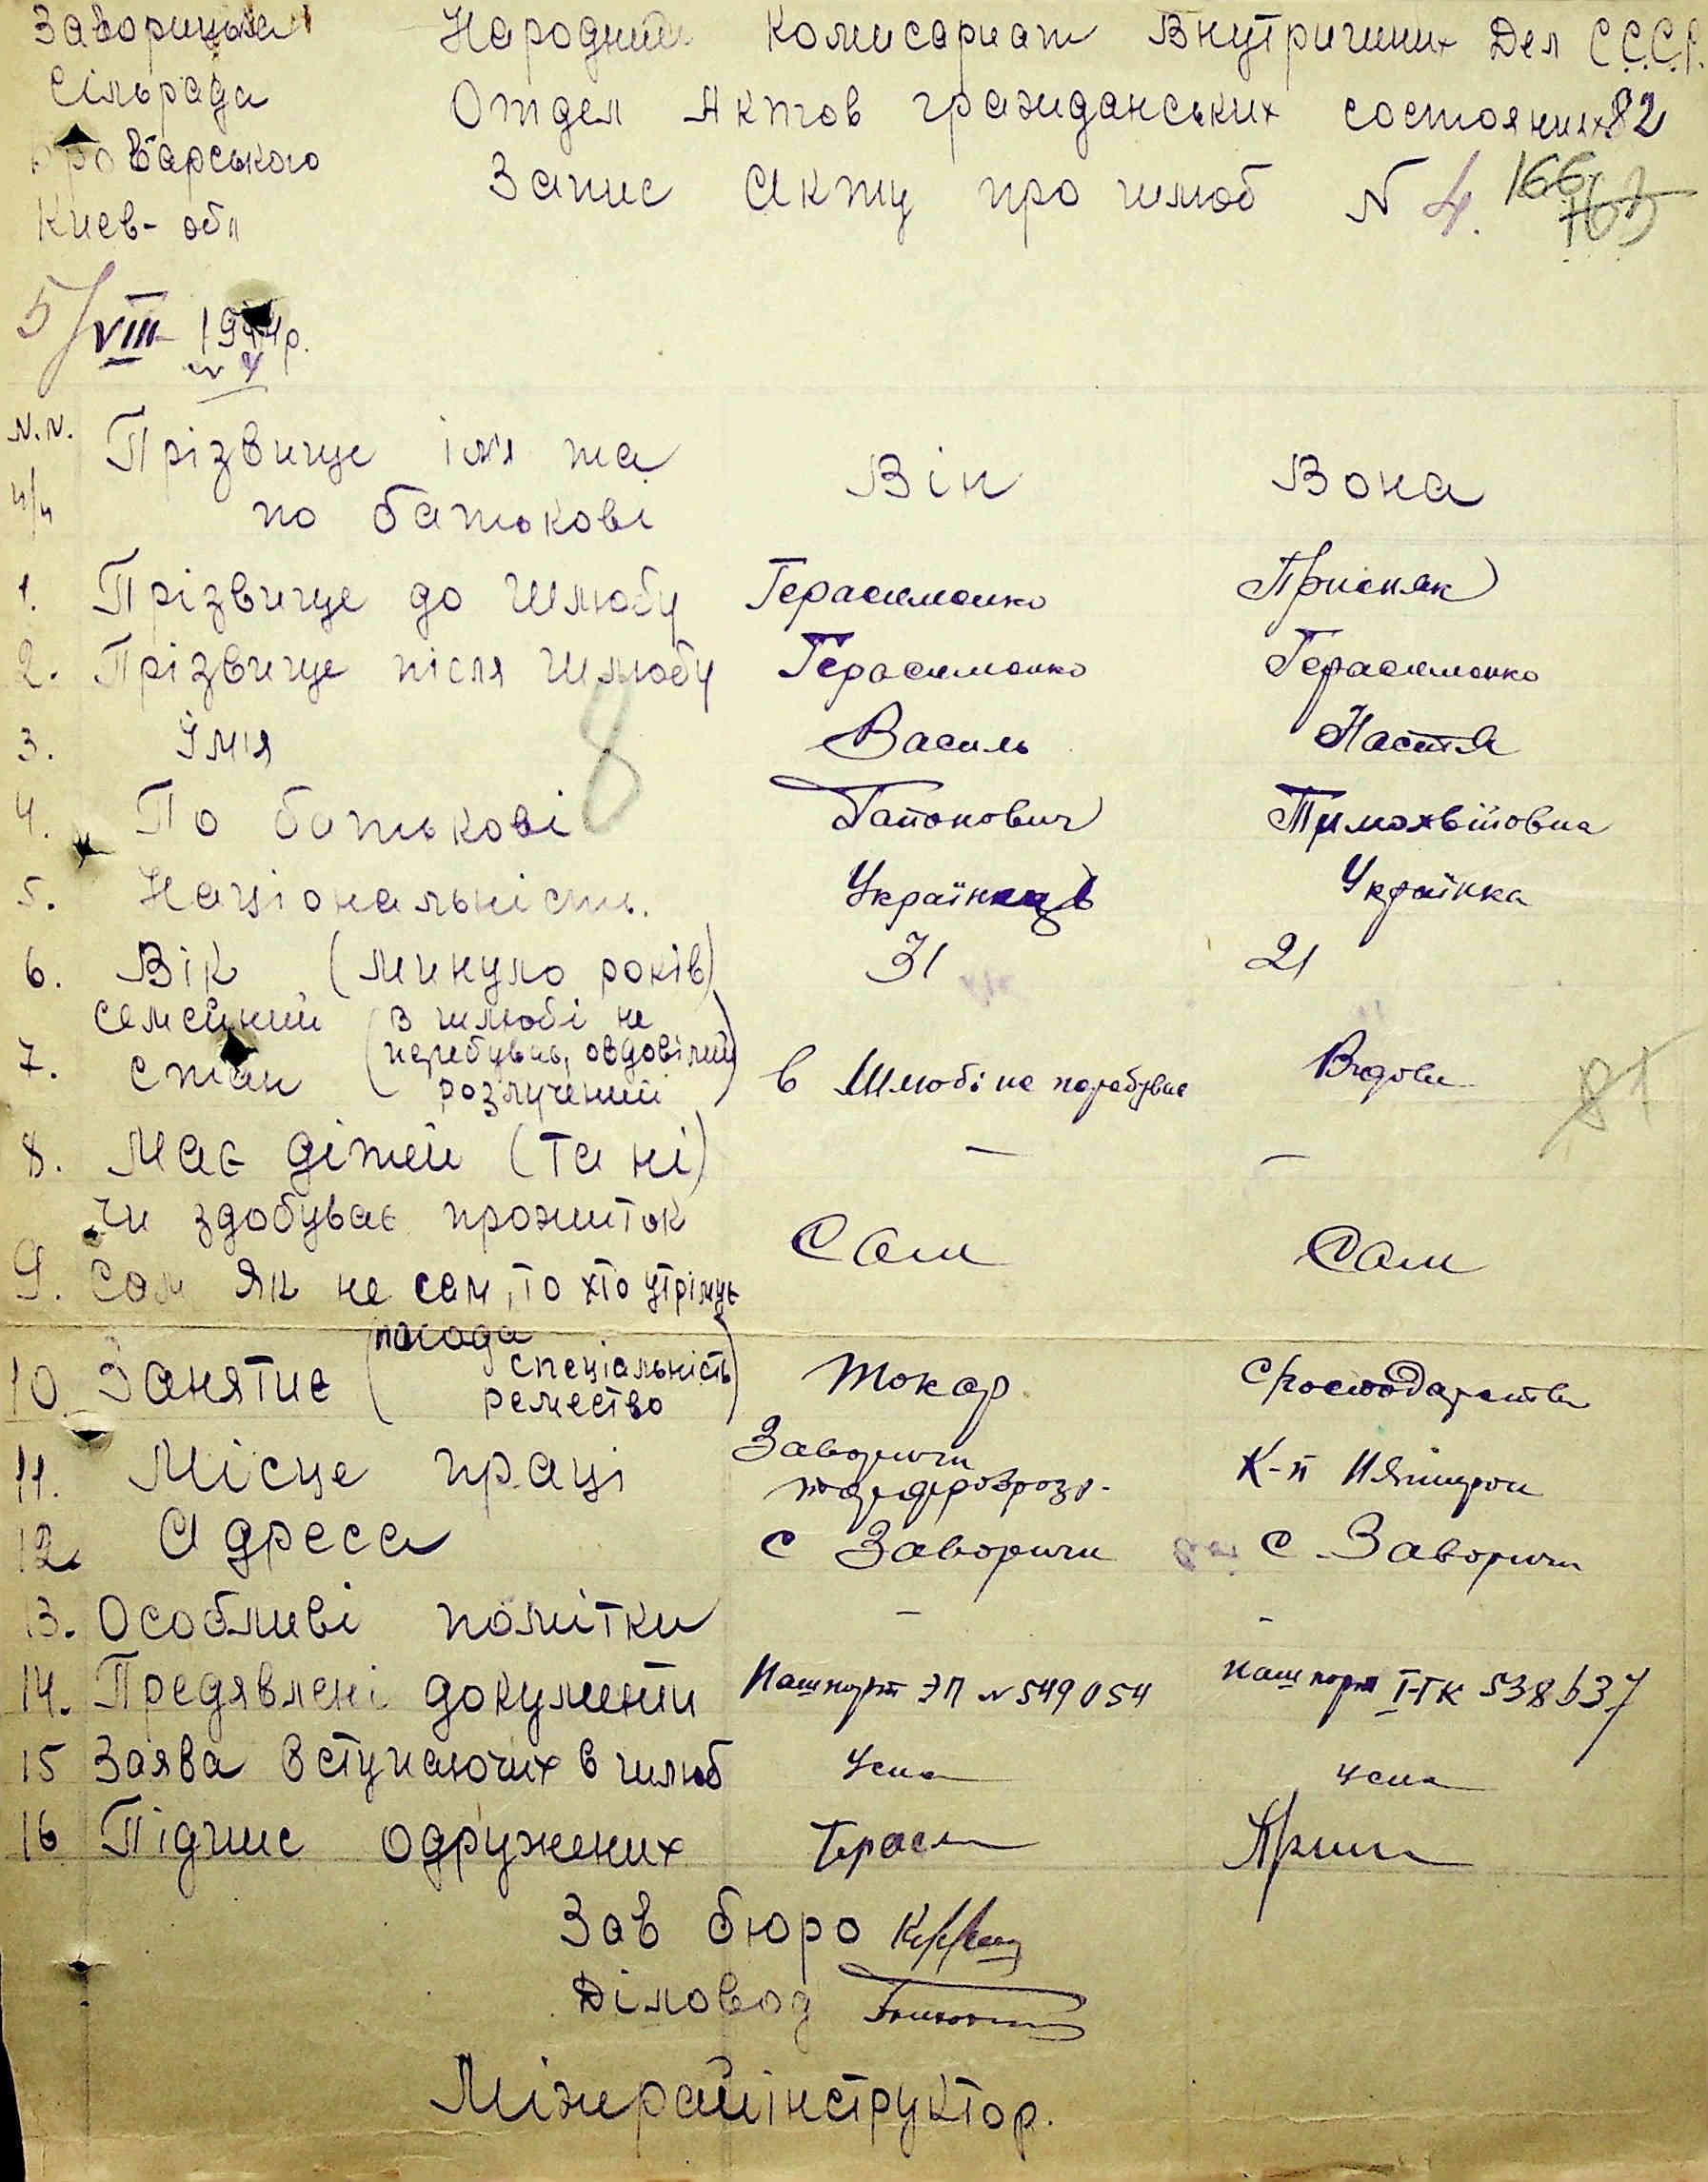 Заворицька Народний Комисариат Внутришних Дел С.С.С.Р.
Сільрада Отдел Актов гражиданських состояниях 82
Броварського Запис Акту про шлюб N 4. 166
Киев- обл
5/VIII 1944р.
N.N. Прізвище ім'я та Він Вона
п/п по батькові
1. Прізвище до шлюбу Герасименко Присняк
2. Прізвище після шлюбу Герасименко Герасименко
3. Імія Василь Настя
4. По батькові Гапонович Тимохвіїовна
5. Національність. Українець Українка
6. Вік (минуло років) 31 21
7. Семейний стан (в шлюбі не перебував, овдовілий розлучений) в шлюбі не перебував Вдова 81
8. Має дітей (та ні) — —
Чи здобуває прожиток
9. Сам Як не сам, то хто утрімує Сам Сам
10. Занятиє (посада спеціальність ремество) Токар
11. Місце праці Заворичи К-п
12. Адреса с Заворичи с Заворичи
13. Особливі помітки - -
14. Предявлені документи Пашпорт ЭП N 549054 пашпорт I-ТК 538637
15 Заява вступаючих в шлюб усна усна
16 Підпис одружених Герас
Зав бюро
Діловод
Міжрайінструктор.
8